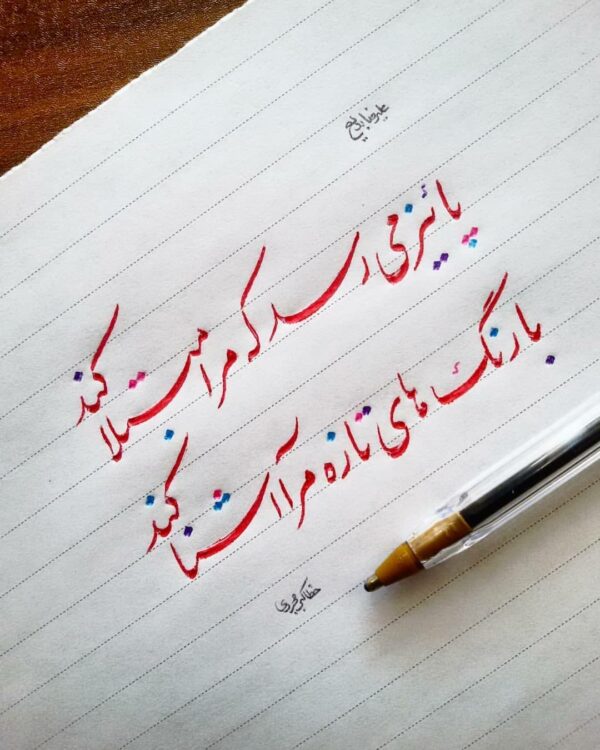 علیرضا بدیع
پائیز می رسد که مرا مبتلا کند
با رنگ های تازه مرا آشنا کند
خط اکبر